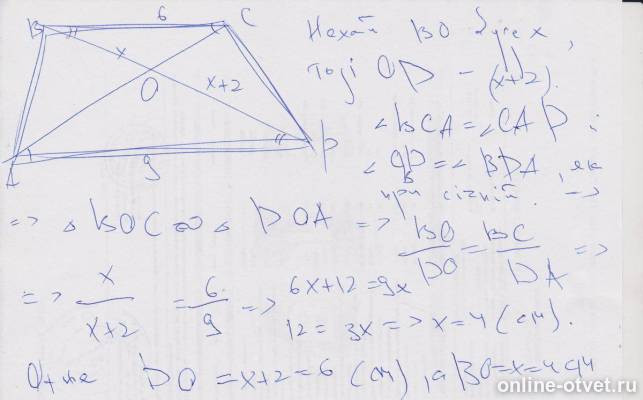 B 6 C
x
O
x+2
A 9 D
Нехай BO буде x,
тоді OD – (x+2).
∠BCA=∠CAD і
∠CBD=∠BDA, як
при січній. =>
=> △BOC ∞ △DOA => BO/DO = BC/DA =>
=> x/x+2 = 6/9 => 6x+12=9x
12=3x => x=4 (см).
Отже DO=x+2=6 (см), а BO=x=4 см
online-otvet.ru